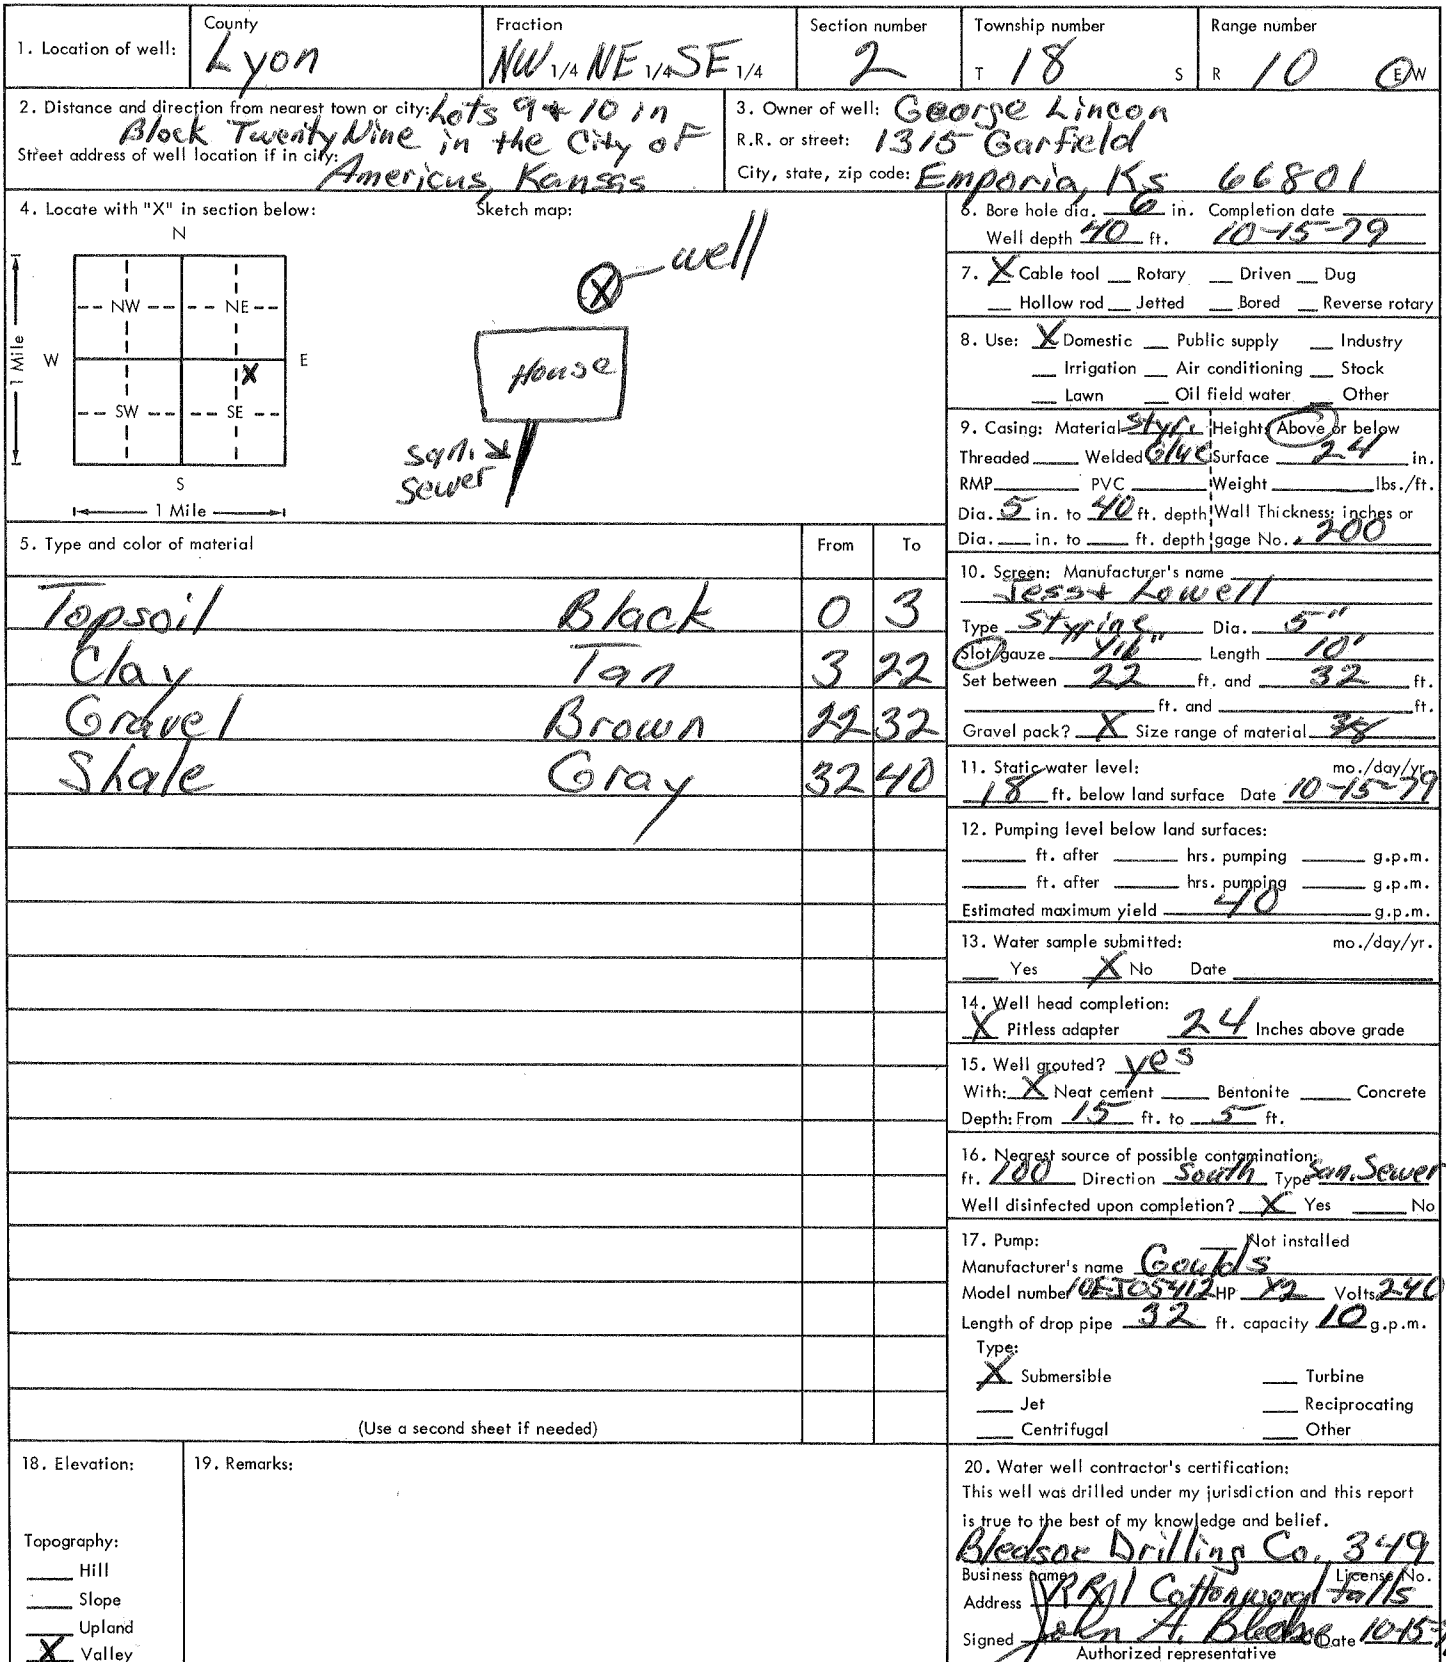 1. Location of well: County Lyon Fraction NW 1/4 NE 1/4 SE 1/4 Section number 2 Township number T 18 S Range number R 10 E/W
2. Distance and direction from nearest town or city: Lots 9 & 10 in
Block Twenty Nine in the City of
Street address of well location if in city:
Americus, Kansas
3. Owner of well: George Lincon
R.R. or street: 1315 Garfield
City, state, zip code: Emporia, Ks 66801
4. Locate with "X" in section below:
N
NW NE
W E
X
SW SE
S
1 Mile
1 Mile
Sketch map:
X well
House
San.
Sewer
5. Type and color of material From To
Topsoil Black 0 3
Clay Tan 3 22
Gravel Brown 22 32
Shale Gray 32 40
(Use a second sheet if needed)
6. Bore hole dia. 6 in. Completion date
Well depth 40 ft. 10-15-79
7. X Cable tool Rotary Driven Dug
Hollow rod Jetted Bored Reverse rotary
8. Use: X Domestic Public supply Industry
Irrigation Air conditioning Stock
Lawn Oil field water Other
9. Casing: Material Styr. Height: Above or below
Threaded Welded Glue Surface 24 in.
RMP PVC Weight lbs./ft.
Dia. 5 in. to 40 ft. depth Wall Thickness: inches or
Dia. in. to ft. depth gage No. .200
10. Screen: Manufacturer's name
Jess & Lowell
Type Styrine Dia. 5"
Slot/gauze 1/16" Length 10'
Set between 22 ft. and 32 ft.
ft. and ft.
Gravel pack? X Size range of material
11. Static water level: mo./day/yr.
18 ft. below land surface Date 10-15-79
12. Pumping level below land surfaces:
ft. after hrs. pumping g.p.m.
ft. after hrs. pumping g.p.m.
Estimated maximum yield 40 g.p.m.
13. Water sample submitted: mo./day/yr.
Yes X No Date
14. Well head completion:
X Pitless adapter 24 Inches above grade
15. Well grouted? yes
With: X Neat cement Bentonite Concrete
Depth: From 15 ft. to 5 ft.
16. Nearest source of possible contamination:
ft. 100 Direction South Type San. Sewer
Well disinfected upon completion? X Yes No
17. Pump: Not installed
Manufacturer's name Goulds
Model number 10EJ05412 HP 1/2 Volts 240
Length of drop pipe 32 ft. capacity 10 g.p.m.
Type:
X Submersible Turbine
Jet Reciprocating
Centrifugal Other
18. Elevation:
Topography:
Hill
Slope
Upland
X Valley
19. Remarks:
20. Water well contractor's certification:
This well was drilled under my jurisdiction and this report
is true to the best of my knowledge and belief.
Bledsoe Drilling Co. 349
Business name License No.
Address RR 1 Cottonwood Falls
Signed John A. Bledsoe Date 10-15-
Authorized representative